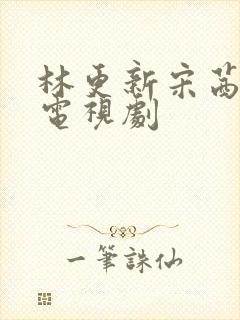 林更新宋茜
電視劇
一筆誅仙